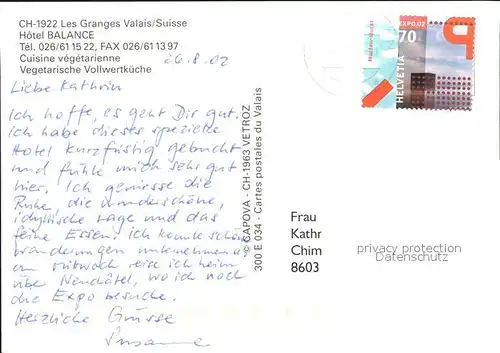 CH-1922 Les Granges Valais/Suisse
Hôtel BALANCE
Tél. 026/61 15 22, FAX 026/61 13 97
Cuisine végétarienne
Vegetarische Vollwertküche
26.8.02
Liebe Kathrin
Ich hoffe, es geht Dir gut.
Ich habe dieses spezielle
Hotel kurzfristig gebucht
und fühle mich sehr gut
hier. Ich geniesse die
Ruhe, die wunderschöne,
idyllische Lage und das
feine Essen. Ich konnte schöne
Wanderungen unternehmen u.
am Mittwoch reise ich heim
über Neuchâtel, wo ich noch
die Expo besuche.
Herzliche Grüsse
Susanne
© CAPOVA - CH-1963 VETROZ
300 E 034 - Cartes postales du Valais
EXPO.02
70
HELVETIA
Frau
Kathr
Chim
8603
privacy protection
Datenschutz